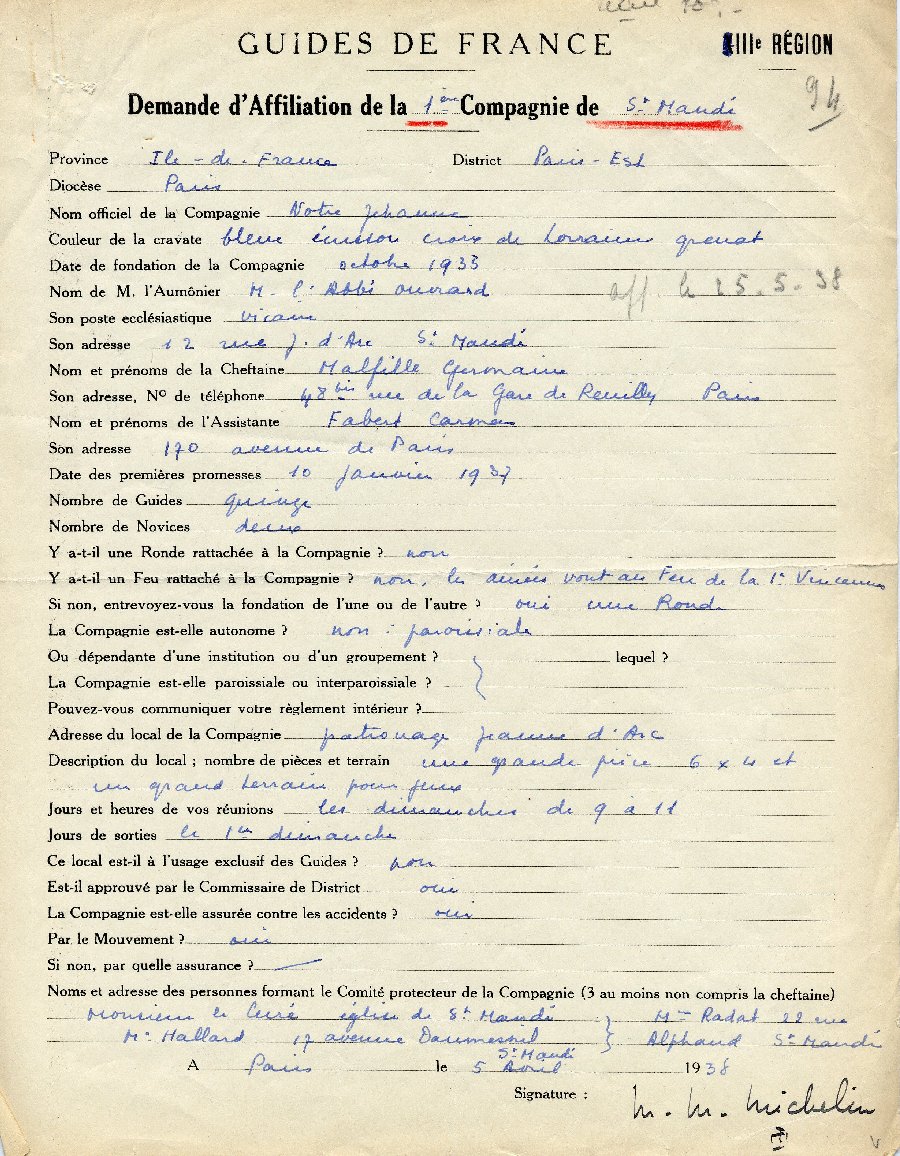 GUIDES DE FRANCE
IIIe RÉGION
Demande d'Affiliation de la 1ère Compagnie de St Mandé
94
Province Ile-de-France District Paris-Est
Diocèse Paris
Nom officiel de la Compagnie Notre Jehanne
Couleur de la cravate bleue écusson croix de Lorraine grenat
Date de fondation de la Compagnie octobre 1935
Nom de M. l'Aumônier M. l'Abbé Ouvrard aff. le 25-5-38
Son poste ecclésiastique vicaire
Son adresse 12 rue J. d'Arc St Mandé
Nom et prénoms de la Cheftaine Malfille Germaine
Son adresse, No de téléphone 48 bis rue de la Gare de Reuilly Paris
Nom et prénoms de l'Assistante Fabert Carmen
Son adresse 170 avenue de Paris
Date des premières promesses 10 janvier 1937
Nombre de Guides quinze
Nombre de Novices deux
Y a-t-il une Ronde rattachée à la Compagnie ? non
Y a-t-il un Feu rattaché à la Compagnie ? non, les aînées vont au Feu de la 1e Vincennes
Si non, entrevoyez-vous la fondation de l'une ou de l'autre ? oui une Ronde
La Compagnie est-elle autonome ? non : paroissiale
Ou dépendante d'une institution ou d'un groupement ? lequel ?
La Compagnie est-elle paroissiale ou interparoissiale ?
Pouvez-vous communiquer votre règlement intérieur ?
Adresse du local de la Compagnie patronage Jeanne d'Arc
Description du local ; nombre de pièces et terrain une grande pièce 6 x 4 et
un grand terrain pour jeux
Jours et heures de vos réunions les dimanches de 9 à 11
Jours de sorties le 1er dimanche
Ce local est-il à l'usage exclusif des Guides ? non
Est-il approuvé par le Commissaire de District oui
La Compagnie est-elle assurée contre les accidents ? oui
Par le Mouvement ? oui
Si non, par quelle assurance ?
Noms et adresse des personnes formant le Comité protecteur de la Compagnie (3 au moins non compris la cheftaine)
Monsieur le Curé église de St Mandé } Mme Radat 22 rue
Mr Hallard 17 avenue Daumesnil St Mandé } Alphand St Mandé
A Paris le 5 Avril 1938
Signature :
M. M. Michelin